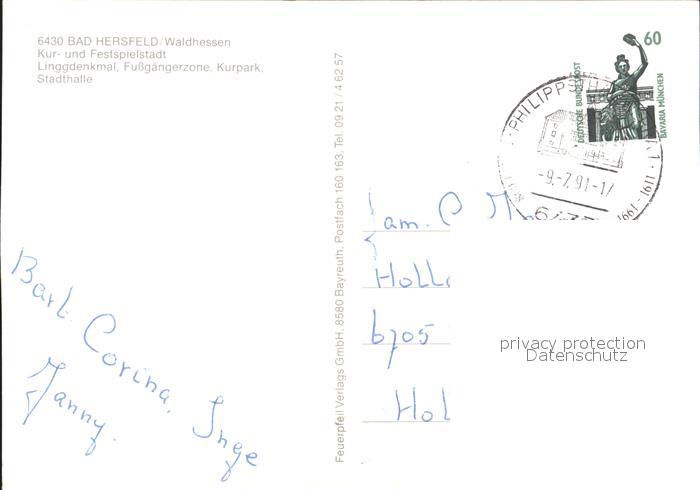 6430 BAD HERSFELD/Waldhessen
Kur- und Festspielstadt
Linggdenkmal, Fußgängerzone, Kurpark,
Stadthalle
Feuerpfeil Verlags GmbH, 8580 Bayreuth, Postfach 160 163, Tel. 09 21 / 4 62 57
60
DEUTSCHE BUNDESPOST
BAVARIA MÜNCHEN
PHILIPPS
-9.-7.91-17
1991
Fam. C
Holl
6705
Hol
Corina, Inge
privacy protection
Datenschutz